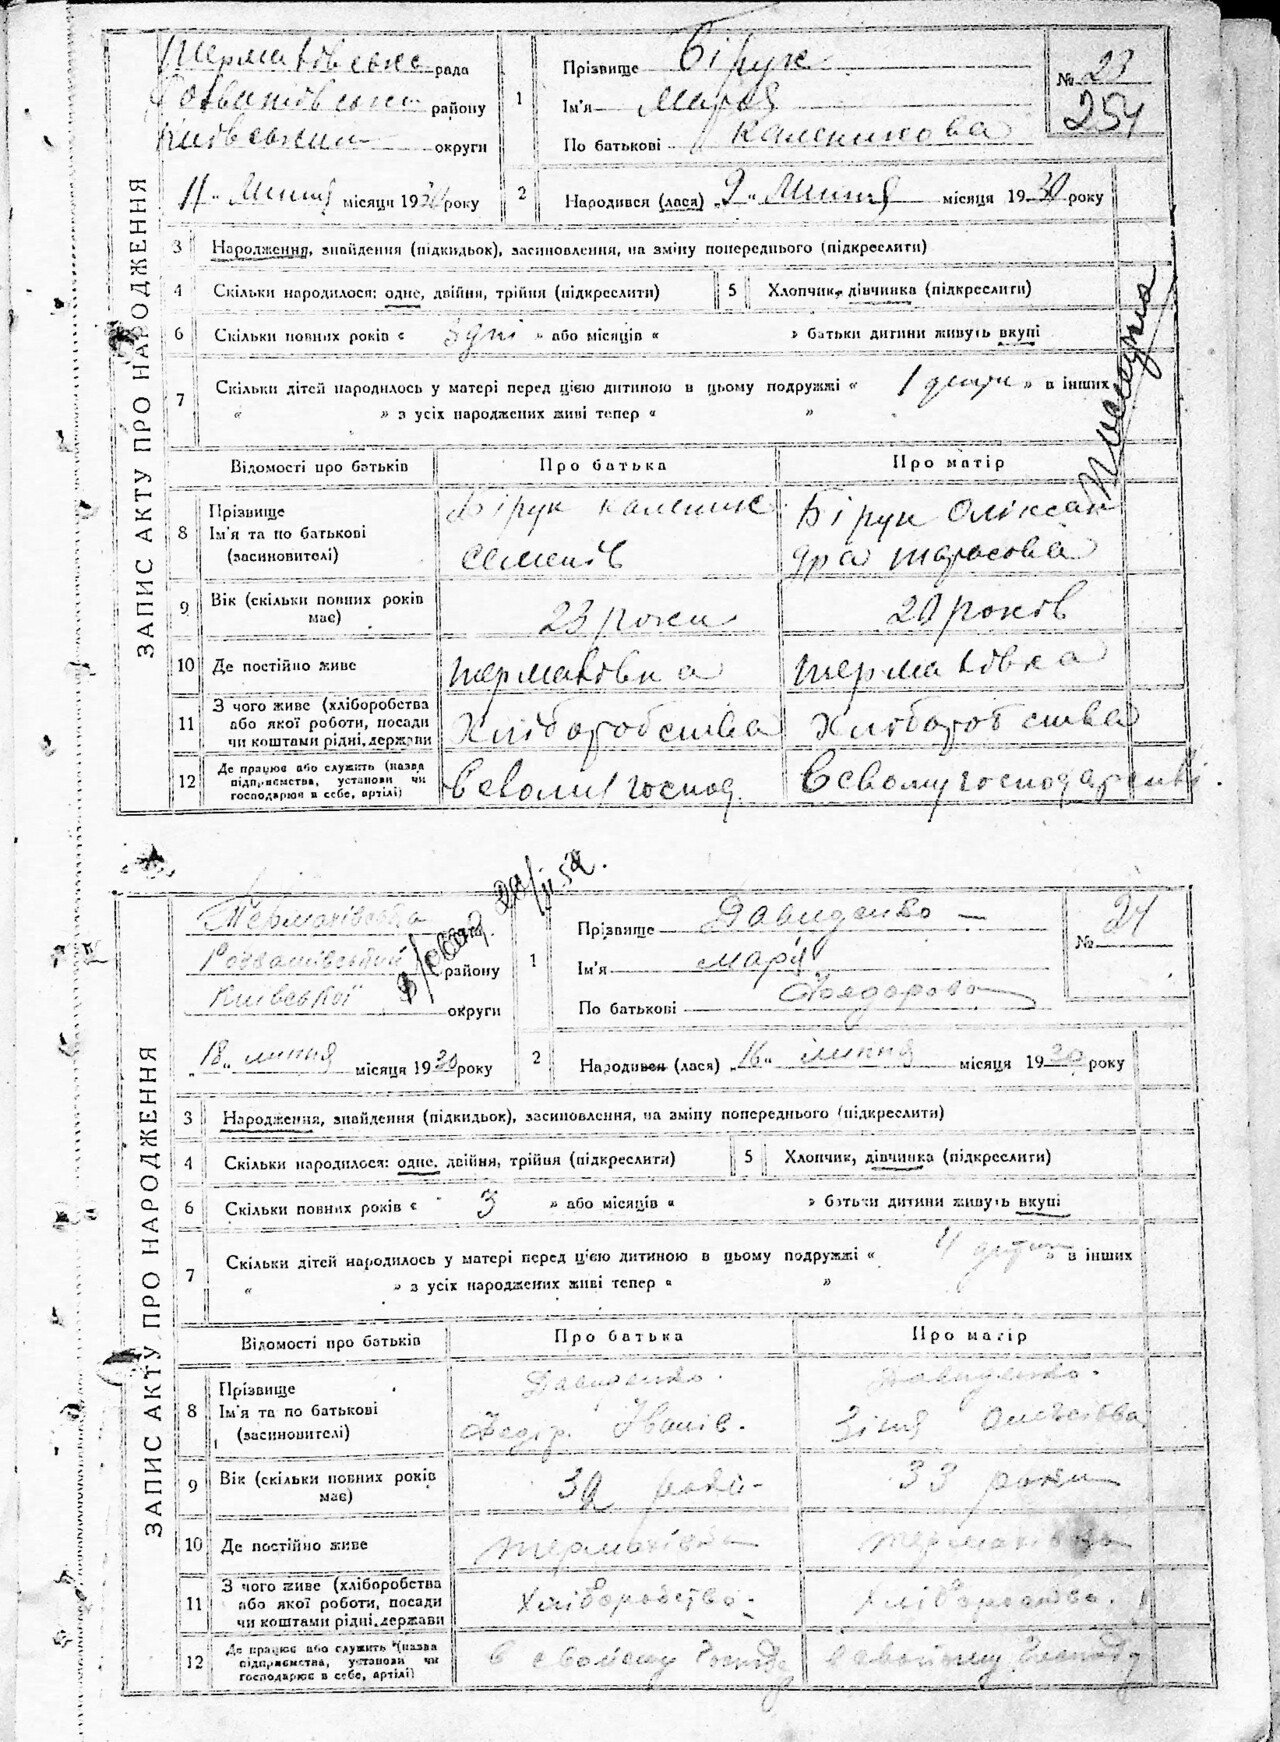 ЗАПИС АКТУ ПРО НАРОДЖЕННЯ
рада
району
округи
11 " Липня місяця 1930 року
1
Прізвище Бірук
Ім'я Марія
По батькові Каленикова
№ 23
254
2 Народився (лася) " 9 " Липня місяця 1930 року
3 Народження, знайдення (підкидьок), засиновлення, на зміну попереднього (підкреслити)
4 Скільки народилося: одне, двійня, трійня (підкреслити) 5 Хлопчик, дівчинка (підкреслити)
6 Скільки повних років « 3 дні » або місяців « » батьки дитини живуть вкупі
7 Скільки дітей народилось у матері перед цією дитиною в цьому подружжі « 1 » в інших
« » з усіх народжених живі тепер « »
Відомості про батьків Про батька Про матір
8 Прізвище Ім'я та по батькові (засиновителі) Бірук Каленик Семенів Бірук Олександра Тарасова
9 Вік (скільки повних років має) 23 роки 20 років
10 Де постійно живе Термаховка Термаховка
11 З чого живе (хліборобства або якої роботи, посади чи коштами рідні, держави Хліборобства Хліборобства
12 Де працює або служить (назва підприємства, установи чи господарює в себе, артілі) В своїм господ. В своему господарстві.
ЗАПИС АКТУ ПРО НАРОДЖЕННЯ
району
Київської округи
" 18 " липня місяця 1930 року
1
Прізвище Давиденко
Ім'я Марія
По батькові Хведорова
№ 24
2 Народився (лася) " 16 " липня місяця 1930 року
3 Народження, знайдення (підкидьок), засиновлення, на зміну попереднього (підкреслити)
4 Скільки народилося: одне, двійня, трійня (підкреслити) 5 Хлопчик, дівчинка (підкреслити)
6 Скільки повних років « 3 » або місяців « » батьки дитини живуть вкупі
7 Скільки дітей народилось у матері перед цією дитиною в цьому подружжі « » в інших
« » з усіх народжених живі тепер « »
Відомості про батьків Про батька Про матір
8 Прізвище Ім'я та по батькові (засиновителі) Давиденко. Хведір Іванів. Давиденко.
9 Вік (скільки повних років має) 33 роки
10 Де постійно живе Термахівка Термахівка
11 З чого живе (хліборобства або якої роботи, посади чи коштами рідні, держави Хліборобство. Хліборобство.
12 Де працює або служить (назва підприємства, установи чи господарює в себе, артілі) в своєму господ в своєму господ